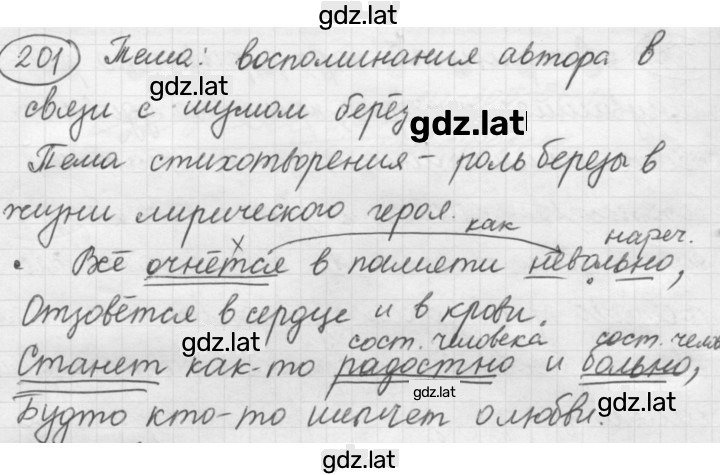 gdz.lat
201 Тема: воспоминания автора в
gdz.lat
связи с шумом берёз
gdz.lat
Тема стихотворения - роль березы в
жизни лирического героя.
как
нареч.
• Всё очнётся в памяти невольно,
Отзовётся в сердце и в крови.
gdz.lat
сост. человека сост. челов
Станет как-то радостно и больно,
gdz.lat
gdz.lat
Будто кто-то шепчет о любви.
gdz.lat